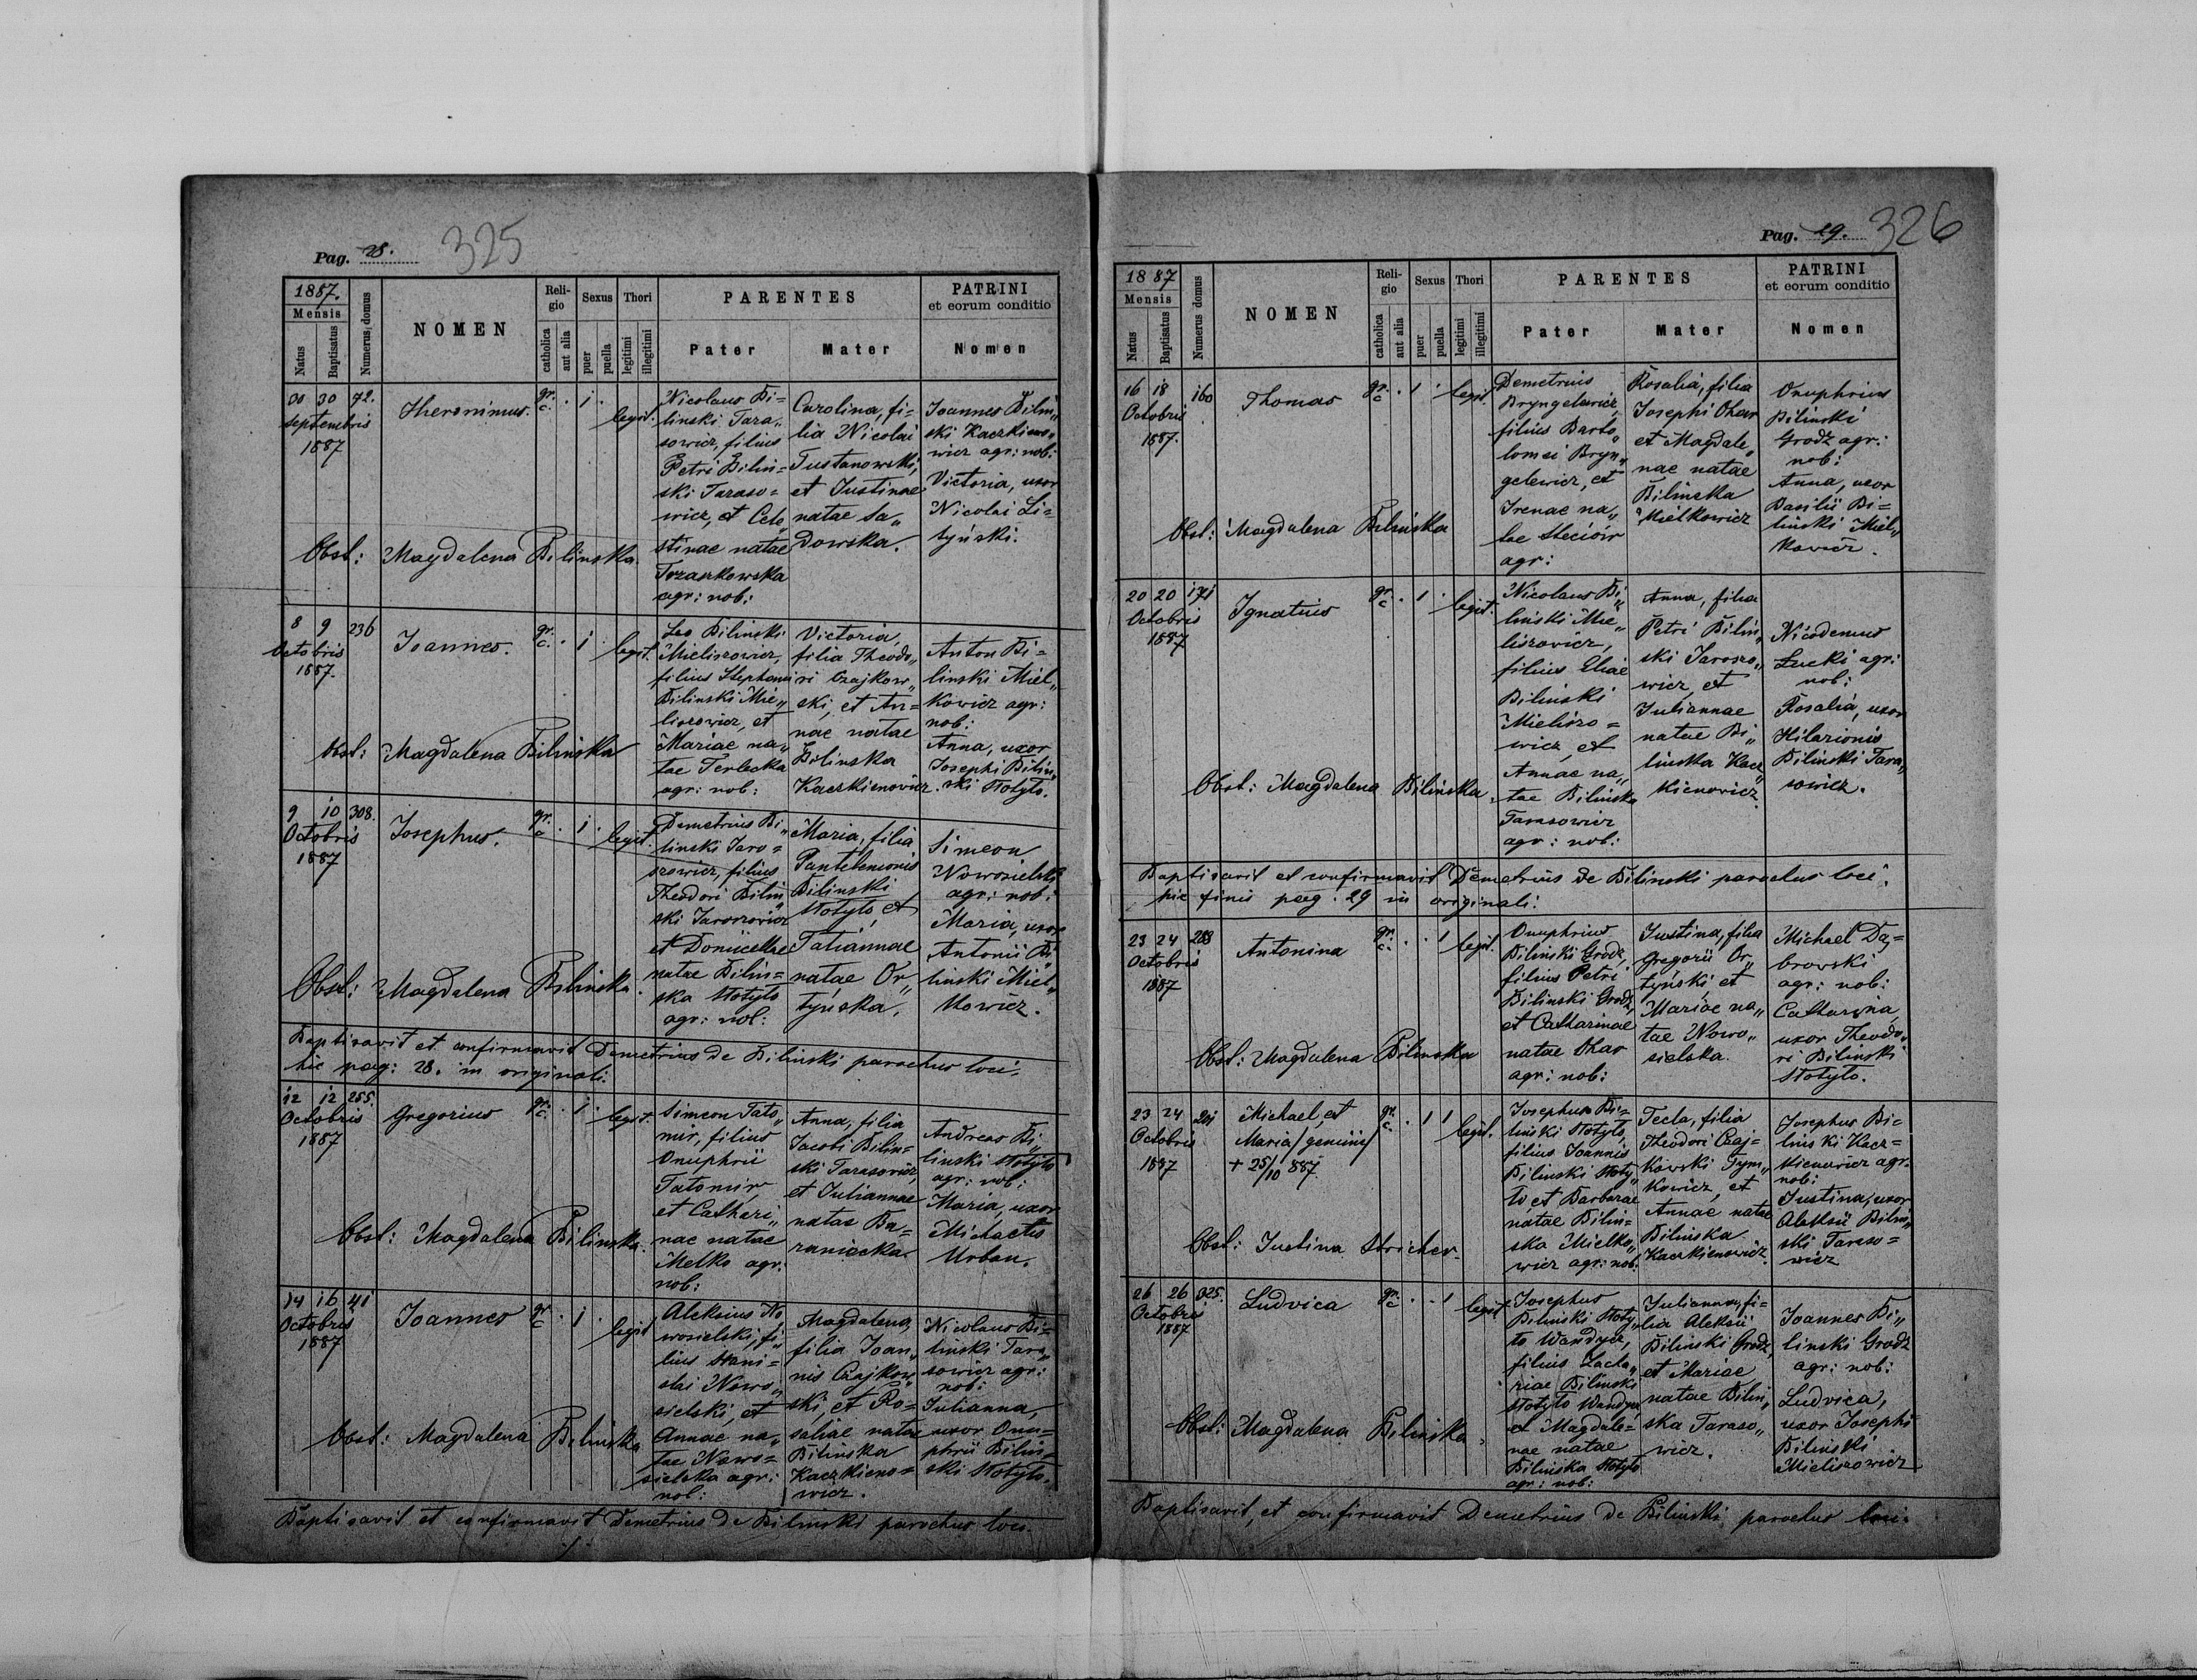 Pag. 28. 325
1887.
Mensis
Natus
Baptisatus
Numerus domus
NOMEN
Religio
catholica
aut alia
Sexus
puer
puella
Thori
legitimi
illegitimi
PARENTES
Pater
Mater
PATRINI
et eorum conditio
Nomen
30 30 72.
Septembris
1887
Hieronimus.
gr. c. · 1 · legit.
Nicolaus Bi=
linski Tara„
sowicz, filius
Petri Bilin=
ski Taraso=
wicz, et Cele„
stinae natae
Trzaskowska
agr: nob:
Carolina, fi=
lia Nicolai
Tustanowski,
et Justinae
natae Sa„
dowska.
Joannes Bilin„
ski Kaczkieno„
wicz agr: nob:
Victoria, uxor
Nicolai Li=
tyński.
Obst: Magdalena Bilinska.
8 9 236
Octobris
1887.
Joannes.
gr. c. · 1 legit.
Leo Bilinski
Mieliszowicz,
filius Stephani
Bilinski Mie„
liszowicz, et
Mariae na„
tae Terlecka
agr: nob:
Victoria,
filia Theodo„
ri Czajkow„
ski, et An=
nae natae
Bilinska
Kaczkienowicz.
Anton Bi=
linski Miel„
kowicz agr:
nob:
Anna, uxor
Josephi Bilin„
ski Stotyto.
Obst: Magdalena Bilinska
9 10 308.
Octobris
1887
Josephus.
gr. c · 1 · legit.
Demetrius Bi„
linski Jaro=
szowicz, filius
Theodori Bilin„
ski Jaroszowicz
et Domicellae
natae Bilin=
ska Stotyto
agr: nob:
Maria, filia
Panteleimonis
Bilinski
Stotyto, et
Tatiannae
natae Or„
tyńska.
Simeon
Nowosielski
agr: nob:
Maria, uxor
Antonii Bi„
linski Miel„
kowicz.
Obst: Magdalena Bilinska.
Baptisavit et confirmavit Demetrius de Bilinski parochus loci.
hic pag: 28. in originali.
12 12 255.
Octobris
1887
Gregorius
gr. c. · 1 · legit.
Simeon Tato„
mir, filius
Onuphrii
Tatomir,
et Cathari„
nae natae
Melko agr:
nob:
Anna, filia
Jacobi Bilin=
ski Tarasowicz,
et Juliannae
natae Ba=
raniecka.
Andreas Bi„
linski Stotyto
agr: nob:
Maria, uxor
Michaelis
Urban.
Obst: Magdalena Bilinska.
14 16 41
Octobris
1887
Joannes
gr. c · 1 · legit.
Aleksius No„
wosielski, fi„
lius Stani=
slai Nowo„
sielski, et
Annae na„
tae Nowo=
sielska agr:
nob:
Magdalena,
filia Joan„
nis Czajkow„
ski, et Ro=
saliae natae
Bilinska
Kaczkieno=
wicz.
Nicolaus Bi=
linski Tara„
sowicz agr:
nob:
Julianna,
uxor Onu=
phrii Bilin=
ski Stotyto.
Obst: Magdalena Bilinska
Baptisavit et confirmavit Demetrius de Bilinski parochus loci.
Pag. 29. 326
1887
Mensis
Natus
Baptisatus
Numerus domus
NOMEN
Religio
catholica
aut alia
Sexus
puer
puella
Thori
legitimi
illegitimi
PARENTES
Pater
Mater
PATRINI
et eorum conditio
Nomen
16 18 160
Octobris
1887.
Thomas
gr. c · 1 · legit.
Demetrius
Bryngelewicz,
filius Barto„
lomei Bryn„
gelewicz, et
Irenae na„
tae Steciów
agr:
Rosalia, filia
Josephi Ohar
et Magdale„
nae natae
Bilinska
Mielkowicz
Onuphrius
Bilinski
Grodz agr:
nob:
Anna, uxor
Basilii Bi=
linski Miel„
kowicz.
Obst: Magdalena Bilinska
20 20 171
Octobris
1887
Ignatius
gr. c · 1 · legit.
Nicolaus Bi„
linski Mie„
liszowicz,
filius Eliae
Bilinski
Mieliszo=
wicz, et
Annae na„
tae Bilinska
Tarasowicz
agr: nob:
Anna, filia
Petri Bilin„
ski Jaroszo„
wicz, et
Juliannae
natae Bi„
linska Kacz„
kienowicz.
Nicodemus
Łucki agr:
nob:
Rosalia, uxor
Hilarionis
Bilinski Tara„
sowicz.
Obst: Magdalena Bilinska.
Baptisavit et confirmavit Demetrius de Bilinski parochus loci.
hic finis pag. 29 in originali.
23 24 288
Octobris
1887
Antonina
gr. c. · · 1 legit.
Onuphrius
Bilinski Grodz,
filius Petri
Bilinski Grodz,
et Catharinae
natae Ohar
agr: nob:
Justina, filia
Gregorii Or„
tyński et
Mariae na„
tae Nowo„
sielska.
Michael Dą=
browski
agr: nob:
Catharina,
uxor Theodo„
ri Bilinski
Stotyto.
Obst: Magdalena Bilinska
23 24 201
Octobris
1887
Michael, et
Maria /gemini/
+ 25/10 887.
gr. c. · 1 1 legit.
Josephus Bi=
linski Stotyto,
filius Joannis
Bilinski Stoty„
to et Barbarae
natae Bilin=
ska Mielko„
wicz agr: nob:
Tecla, filia
Theodori Czaj=
kowski Tym„
kowicz, et
Annae natae
Bilinska
Kaczkienowicz.
Josephus Bi=
linski Kacz=
kienowicz agr.
nob:
Justina, uxor
Aleksii Bilin„
ski Taraso=
wicz
Obst: Justina Stricher.
26 26 325.
Octobris
1887
Ludvica
gr. c. · · 1 legit.
Josephus
Bilinski Stoty„
to Wandycz,
filius Zacha„
riae Bilinski
Stotyto Wandycz,
et Magdale=
nae natae
Bilinska Stotyto
agr: nob:
Julianna, fi=
lia Aleksii
Bilinski Grodz,
et Mariae
natae Bilin„
ska Taraso„
wicz.
Joannes Bi„
linski Grodz
agr: nob:
Ludvica,
uxor Josephi
Bilinski
Mieliszowicz
Obst: Magdalena Bilinska.
Baptisavit, et confirmavit Demetrius de Bilinski parochus loci.